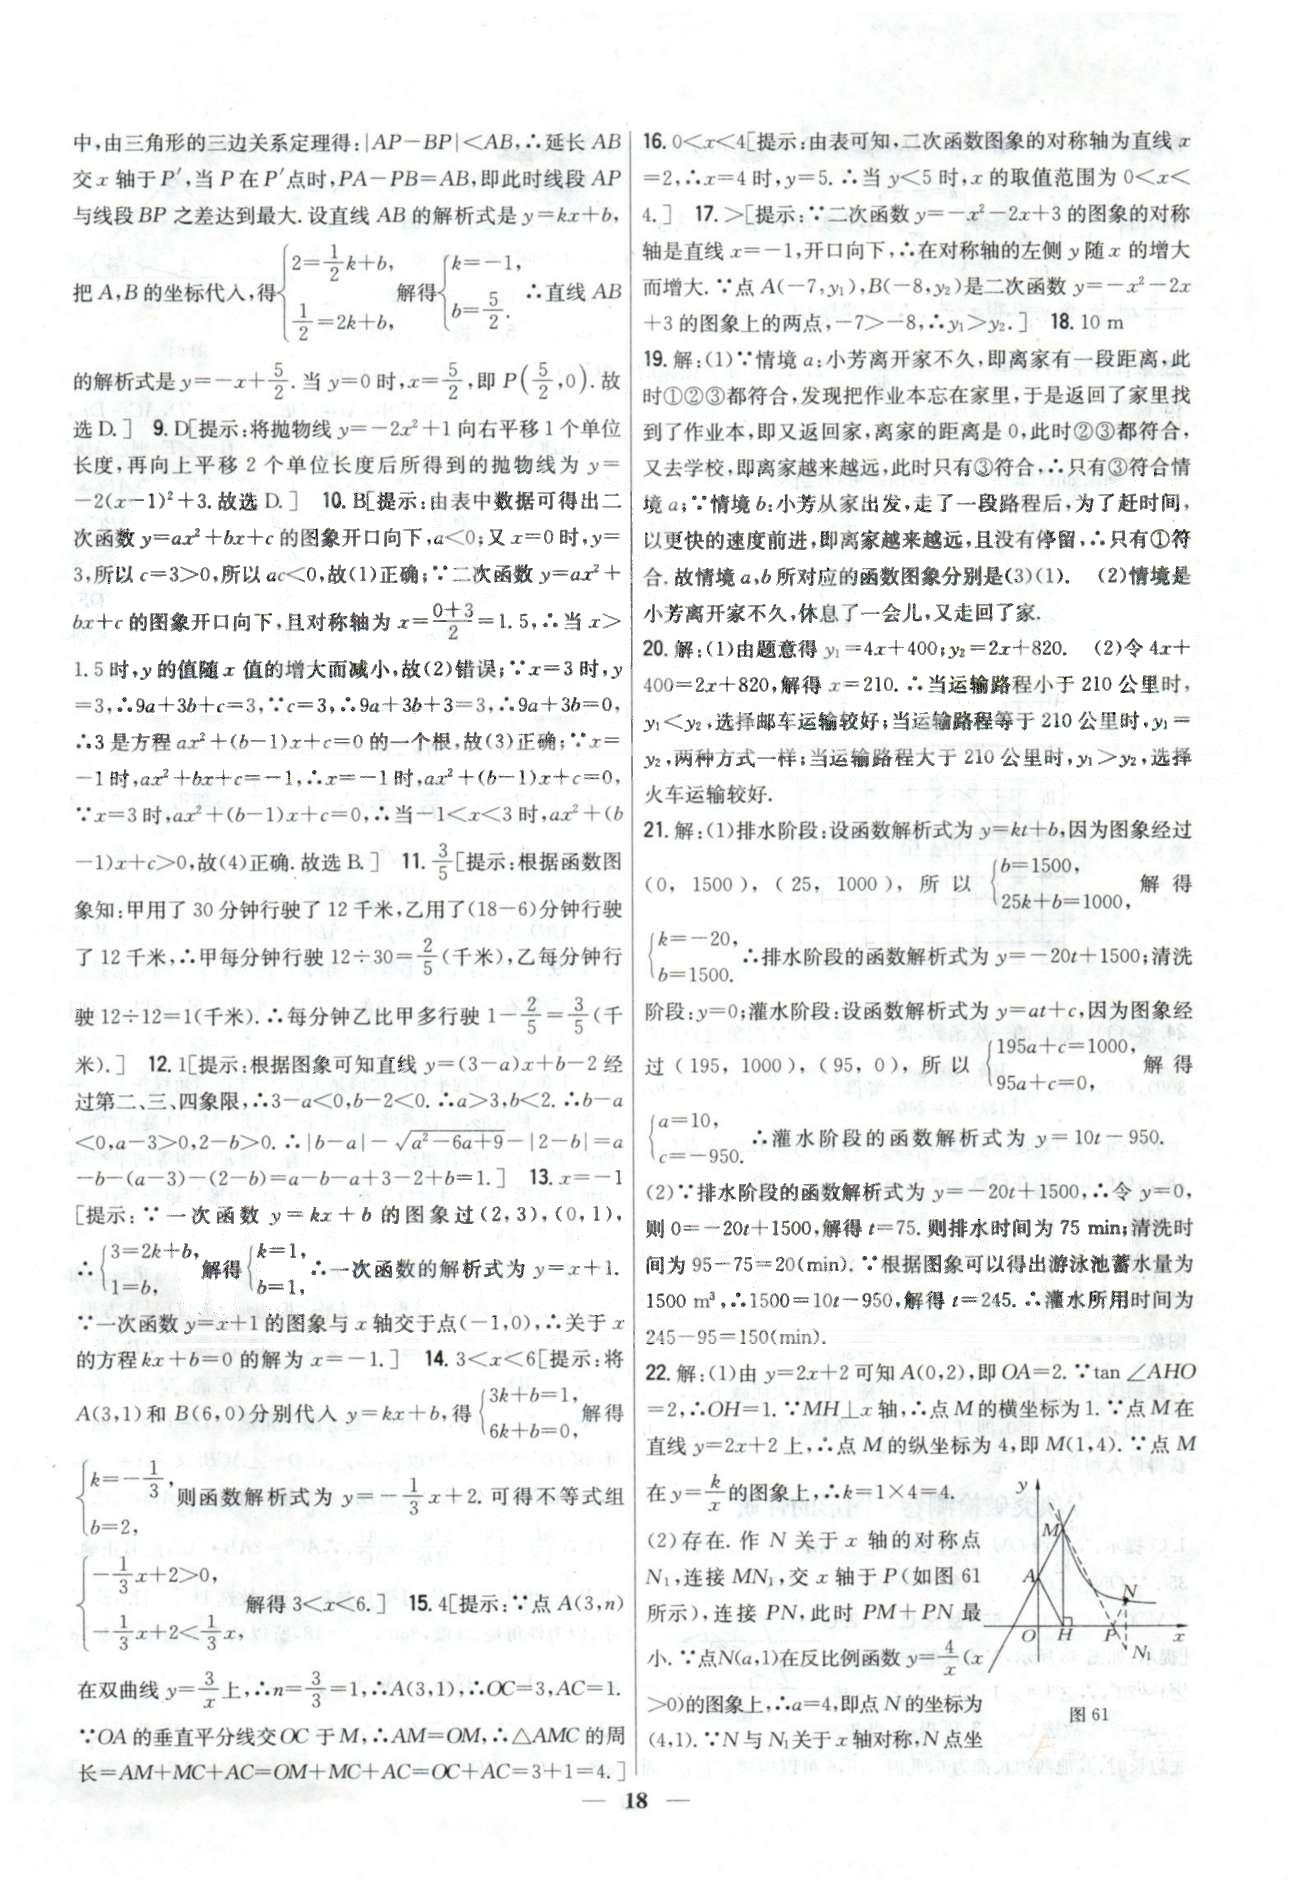 中,由三角形的三边关系定理得:|AP-BP|<AB,∴延长 AB
交 x 轴于 P′,当 P 在 P′点时,PA-PB=AB,即此时线段 AP
与线段 BP 之差达到最大. 设直线 AB 的解析式是 y=kx+b,
把 A,B 的坐标代入,得{2=1/2k+b, 1/2=2k+b, 解得{k=-1, b=5/2. ∴直线 AB
的解析式是 y=-x+5/2. 当 y=0 时,x=5/2,即 P(5/2,0). 故
选 D. ] 9. D[提示:将抛物线 y=-2x²+1 向右平移 1 个单位
长度,再向上平移 2 个单位长度后所得到的抛物线为 y=
-2(x-1)²+3.故选 D. ] 10. B[提示:由表中数据可得出二
次函数 y=ax²+bx+c 的图象开口向下,a<0;又 x=0 时,y=
3,所以 c=3>0,所以 ac<0,故(1)正确;∵二次函数 y=ax²+
bx+c 的图象开口向下,且对称轴为 x=(0+3)/2=1.5,∴当 x>
1.5 时,y 的值随 x 值的增大而减小,故(2)错误;∵x=3 时,y
=3,∴9a+3b+c=3,∵c=3,∴9a+3b+3=3,∴9a+3b=0,
∴3 是方程 ax²+(b-1)x+c=0 的一个根,故(3)正确;∵x=
-1 时,ax²+bx+c=-1,∴x=-1 时,ax²+(b-1)x+c=0,
∵x=3 时,ax²+(b-1)x+c=0,∴当-1<x<3 时,ax²+(b
-1)x+c>0,故(4)正确.故选 B. ] 11. 3/5[提示:根据函数图
象知:甲用了 30 分钟行驶了 12 千米,乙用了(18-6)分钟行驶
了 12 千米,∴甲每分钟行驶 12÷30=2/5(千米),乙每分钟行
驶 12÷12=1(千米). ∴每分钟乙比甲多行驶 1-2/5=3/5(千
米). ] 12. 1[提示:根据图象可知直线 y=(3-a)x+b-2 经
过第二、三、四象限,∴3-a<0,b-2<0. ∴a>3,b<2. ∴b-a
<0,a-3>0,2-b>0. ∴|b-a|-√(a²-6a+9)-|2-b|=a
-b-(a-3)-(2-b)=a-b-a+3-2+b=1. ] 13. x=-1
[提示:∵一次函数 y=kx+b 的图象过(2,3),(0,1),
∴{3=2k+b, 1=b, 解得{k=1, b=1, ∴一次函数的解析式为 y=x+1.
∵一次函数 y=x+1 的图象与 x 轴交于点(-1,0),∴关于 x
的方程 kx+b=0 的解为 x=-1. ] 14. 3<x<6[提示:将
A(3,1)和 B(6,0)分别代入 y=kx+b,得{3k+b=1, 6k+b=0, 解得
{k=-1/3, b=2, 则函数解析式为 y=-1/3x+2. 可得不等式组
{-1/3x+2>0, -1/3x+2<1/3x, 解得 3<x<6. ] 15. 4[提示:∵点 A(3,n)
在双曲线 y=3/x上,∴n=3/3=1,∴A(3,1),∴OC=3,AC=1.
∵OA 的垂直平分线交 OC 于 M,∴AM=OM,∴△AMC 的周
长=AM+MC+AC=OM+MC+AC=OC+AC=3+1=4. ]
16. 0<x<4[提示:由表可知,二次函数图象的对称轴为直线 x
=2,∴x=4 时,y=5. ∴当 y<5 时,x 的取值范围为 0<x<
4. ] 17. >[提示:∵二次函数 y=-x²-2x+3 的图象的对称
轴是直线 x=-1,开口向下,∴在对称轴的左侧 y 随 x 的增大
而增大. ∵点 A(-7,y₁),B(-8,y₂)是二次函数 y=-x²-2x
+3 的图象上的两点,-7>-8,∴y₁>y₂. ] 18. 10 m
19. 解:(1)∵情境 a:小芳离开家不久,即离家有一段距离,此
时①②③都符合,发现把作业本忘在家里,于是返回了家里找
到了作业本,即又返回家,离家的距离是 0,此时②③都符合,
又去学校,即离家越来越远,此时只有③符合,∴只有③符合情
境 a;∵情境 b:小芳从家出发,走了一段路程后,为了赶时间,
以更快的速度前进,即离家越来越远,且没有停留,∴只有①符
合. 故情境 a,b 所对应的函数图象分别是(3)(1). (2)情境是
小芳离开家不久,休息了一会儿,又走回了家.
20. 解:(1)由题意得 y₁=4x+400;y₂=2x+820. (2)令 4x+
400=2x+820,解得 x=210. ∴当运输路程小于 210 公里时,
y₁<y₂,选择邮车运输较好;当运输路程等于 210 公里时,y₁=
y₂,两种方式一样;当运输路程大于 210 公里时,y₁>y₂,选择
火车运输较好.
21. 解:(1)排水阶段:设函数解析式为 y=kt+b,因为图象经过
(0, 1500), (25, 1000), 所以{b=1500, 25k+b=1000, 解得
{k=-20, b=1500. ∴排水阶段的函数解析式为 y=-20t+1500;清洗
阶段:y=0;灌水阶段:设函数解析式为 y=at+c,因为图象经
过(195, 1000), (95, 0), 所以{195a+c=1000, 95a+c=0, 解得
{a=10, c=-950. ∴灌水阶段的函数解析式为 y=10t-950.
(2)∵排水阶段的函数解析式为 y=-20t+1500,∴令 y=0,
则 0=-20t+1500,解得 t=75. 则排水时间为 75 min;清洗时
间为 95-75=20(min). ∵根据图象可以得出游泳池蓄水量为
1500 m³,∴1500=10t-950,解得 t=245. ∴灌水所用时间为
245-95=150(min).
22. 解:(1)由 y=2x+2 可知 A(0,2),即 OA=2. ∵tan ∠AHO
=2,∴OH=1. ∵MH⊥x 轴,∴点 M 的横坐标为 1. ∵点 M 在
直线 y=2x+2 上,∴点 M 的纵坐标为 4,即 M(1,4). ∵点 M
在 y=k/x的图象上,∴k=1×4=4.
(2)存在. 作 N 关于 x 轴的对称点
N₁,连接 MN₁,交 x 轴于 P(如图 61
所示),连接 PN,此时 PM+PN 最
小. ∵点N(a,1)在反比例函数 y=4/x(x
>0)的图象上,∴a=4,即点 N 的坐标为
(4,1). ∵N 与 N₁关于 x 轴对称,N 点坐
y
M
A
N
O H P x
N₁
图 61
— 18 —